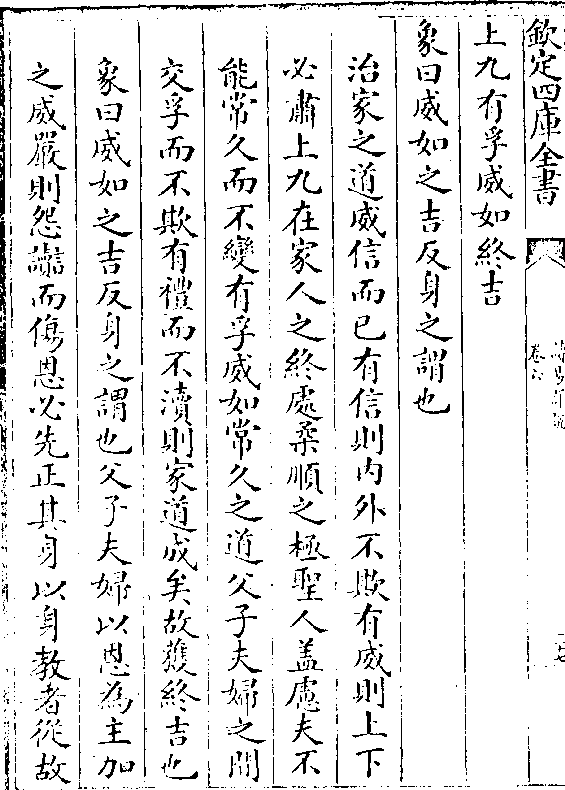 欽定四庫全書
上九有孚威如終吉
象曰威如之吉反身之謂也
治家之道威信而已有信則内外不欺有威則上下
必肅上九在家人之終處柔順之極聖人盖慮夫不
能常久而不變有孚威如常久之道父子夫婦之間
交孚而不欺有禮而不瀆則家道成矣故獲終吉也
象曰威如之吉反身之謂也父子夫婦以恩為主加
之威嚴則怨讟而傷恩必先正其身以身教者從故